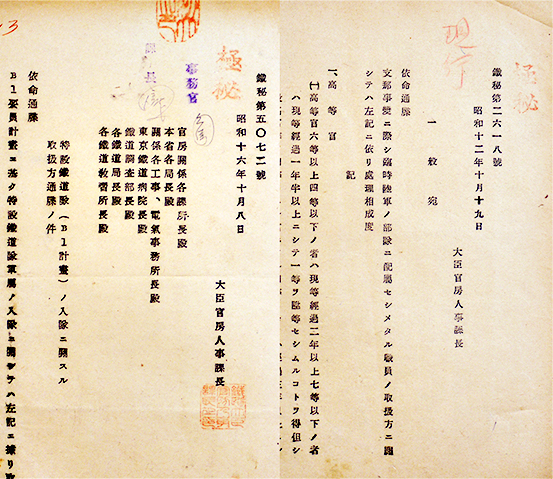 極秘
鐵秘第二六一八號
現行
昭和十二年十月十九日
大臣官房人事課長
一般宛
依命通牒
支那事變ニ際シ臨時陸軍ノ部隊ニ配屬セシメタル職員ノ取扱方ニ關
シテハ左記ニ依リ處理相成度
記
一、高等官
(一)高等官六等以上四等以下ノ者ハ現等經過二年以上七等以下ノ者
ハ現等經過一年半以上ニシテ一等ヲ陞等セシムルコトヲ得但シ
極秘
鐵秘第五〇七二號
昭和十六年十月八日
大臣官房人事課長
事務官
課長
官房關係各課所長殿
本省各局長殿
關係各工事、電氣事務所長殿
東京鐵道病院長殿
鐵道調査部長殿
各鐵道局長殿
各鐵道敎習所長殿
依命通牒
特設鐵道隊(B1計畫)ノ入隊ニ關スル
取扱方通牒ノ件
B1要員計畫ニ基ク特設鐵道隊軍屬ノ入隊ニ關シテハ左記ニ據リ取